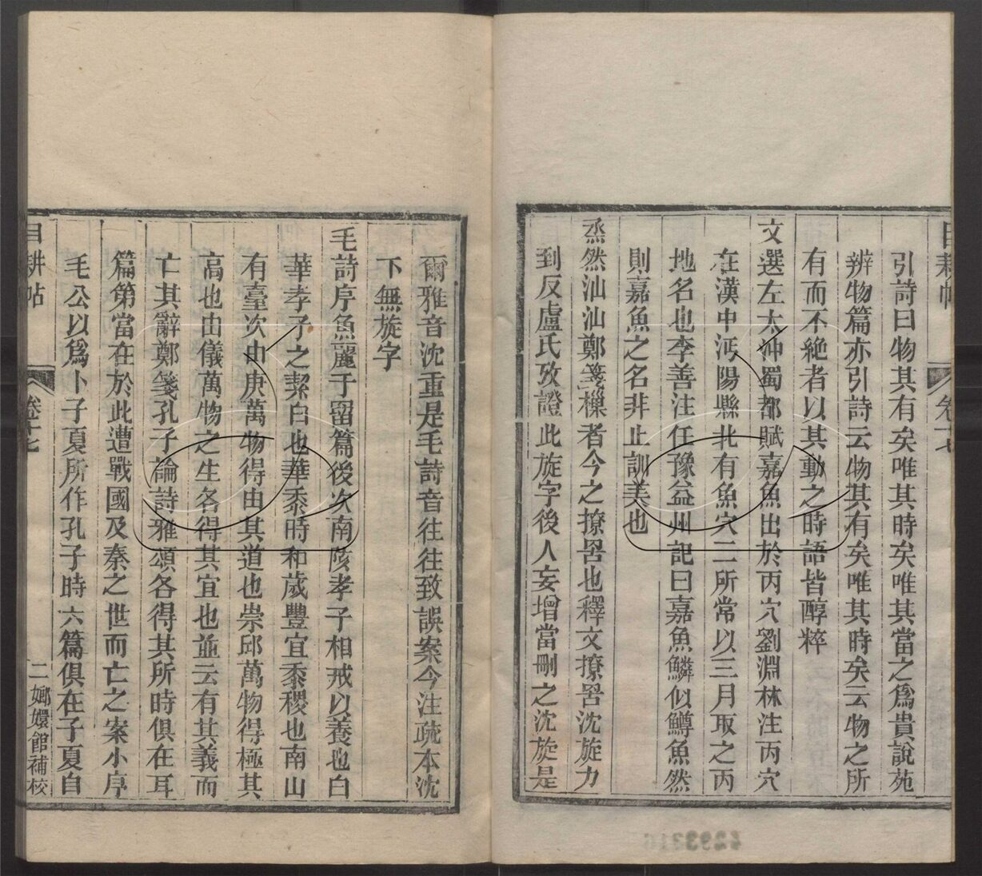 引詩曰物其有矣唯其時矣唯其當之爲貴說苑
辨物篇亦引詩云物其有矣唯其時矣云物之所
有而不絕者以其動之時語皆醇粹
文選左太沖蜀都賦嘉魚出於丙穴劉淵林注丙穴
在漢中沔陽縣北有魚穴二所常以三月取之丙
地名也李善注任豫益州記曰嘉魚鱗似鱒魚然
則嘉魚之名非止訓美也
烝然汕汕鄭箋樔者今之撩罟也釋文撩罟沈旋力
到反盧氏攷證此旋字後人妄增當刪之沈旋是
爾雅音沈重是毛詩音往往致誤案今注疏本沈
下無旋字
毛詩序魚麗于罶篇後次南陔孝子相戒以養也白
華孝子之絜白也華黍時和歲豐宜黍稷也南山
有臺次由庚萬物得由其道也崇邱萬物得極其
高也由儀萬物之生各得其宜也並云有其義而
亡其辭鄭箋孔子論詩雅頌各得其所時俱在耳
篇第當在於此遭戰國及秦之世而亡之案小序
毛公以爲卜子夏所作孔子時六篇俱在子夏自
目耕帖
卷十七
二
嫏嬛館補校